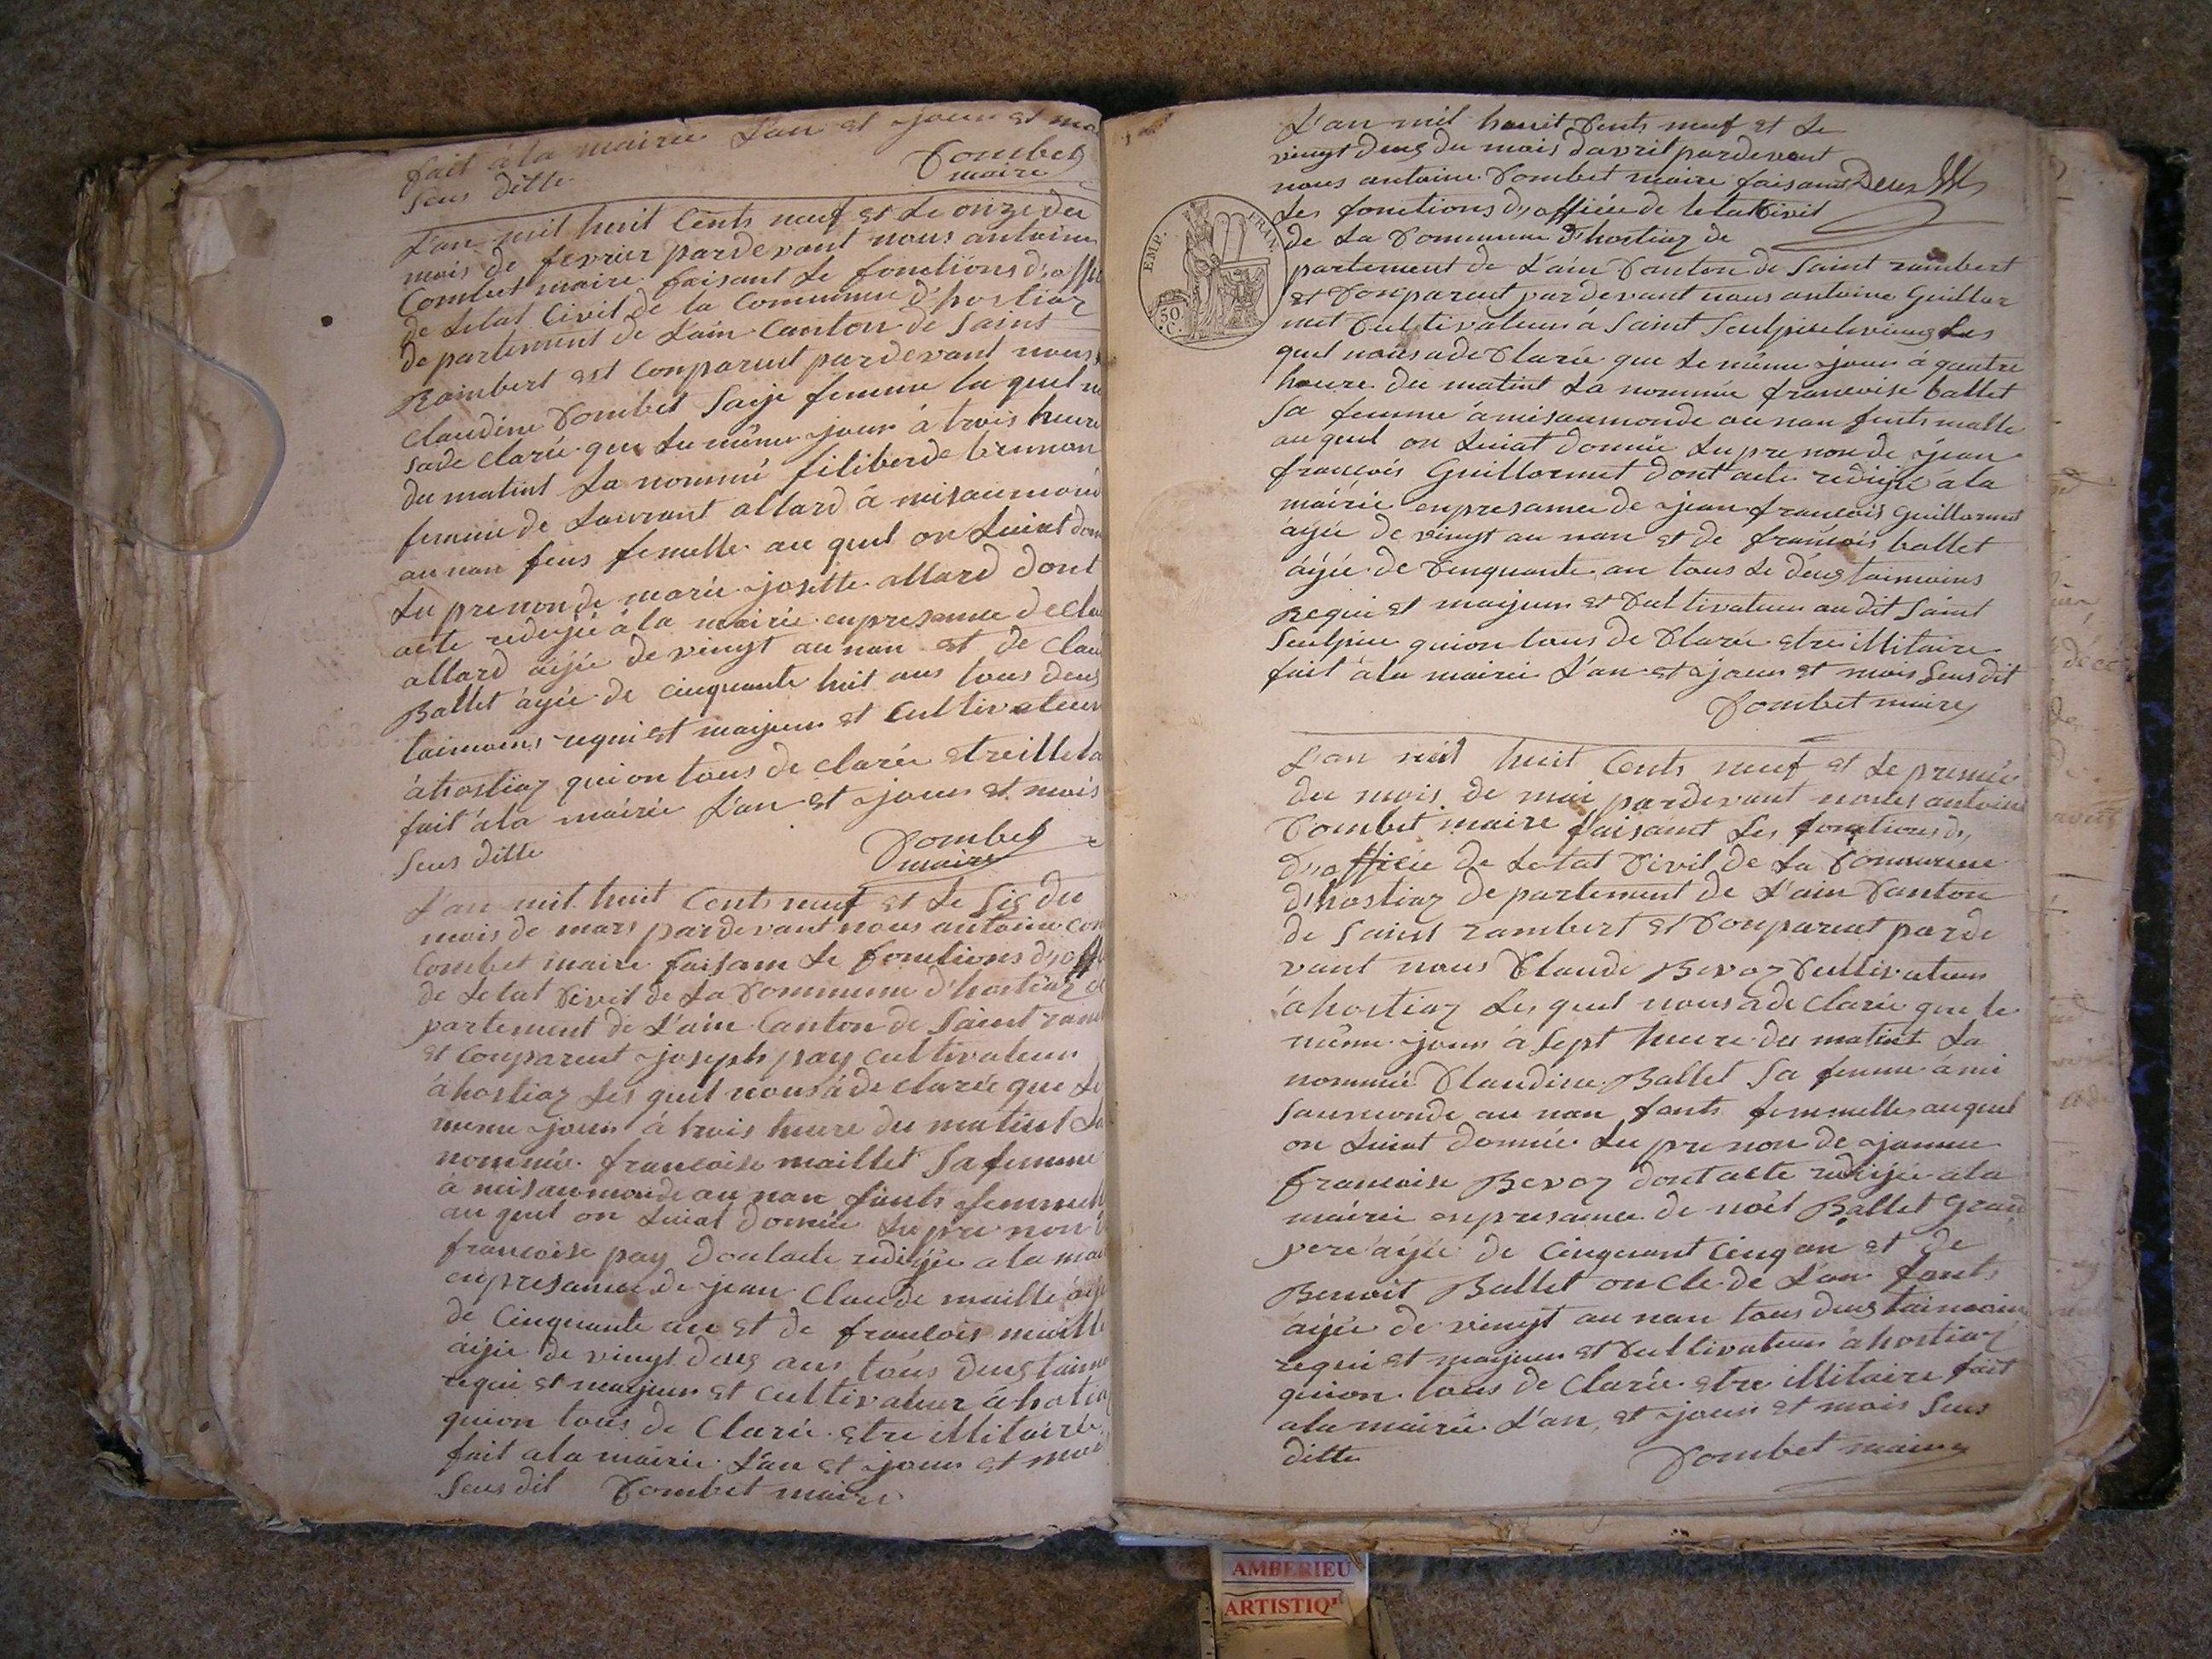 fait à la mairie L'an et jour et mo
Sens ditte
Combet
maire
L'an mil huit Cents neuf et Le onze du
mois de fevrier pardevant nous antoine
Combet maire faisant Le fonctions d'offi
de Letat Civil de la Commune d'hostiaz
departement de L'ain Canton de Saint
Rambert est Conparut pardevant nous
Claudine Combet Saije femme la quel n
sade clarée que Lu même jour à trois heure
du matint La nommé filiberde brunan
femme de Laurant allard à misaumond
au nan fens femelle au quel on Luiat don
Lu prenon de marie josette allard dont
acte redijée à la mairie enpresance de Clau
allard âijée de vingt au nan et de Clau
Ballet âijée de cinquante huit ans tous deus
taimoins requi et maijeur et Cultivateur
à hostiaz qui on tous de clarée etreilleta
fait à la mairie L'an et jour et mois
Sens ditte
Combet
maire
L'an mil huit Cents neuf et Le Sis du
mois de mars pardevant nous antoine Com
Combet maire faisam Le fonctions d'offi
de Letat Civil de La Commune d'hostiaz de
partement de L'ain Canton de Saint ram
et Conparut joseph pay cultivateur
à hostiaz Les quel nous à de clarée que Le
meme jour à trois heure du matint La
nommée francoise maillet Sa femme
à misaumonde au nan fants femmell
au quel on Luiat donnée Lu pre non d
francoise pay dontacte redijée a la mai
enpresance de jean Claude maille âije
de Cinquante an et de francois maille
âijée de vingt deus ans tous deus taimo
requi et maijeur et cultivateur à hotiaz
quion tous de Clarée etre illitaire
fait a la mairie L'an et jour et moi
Sens dit Combet maire
L'an mil houit Cents neuf et Le
vingt deus du mois d'avril pardevant
nous antoine Combet maire faisant
Les fonctions d'officée de letat Civil
de La Commune d'hostiaz de
partement de L'ain Canton de Saint rambert
et Conparut pardevant nous antoine Guillar
met Cultivateur à Saint Seulpiselevieus Les
quel nous a de Clarée que Le même jour à quatre
heure du matint La nommée francoise ballet
Sa femme à misaumonde au nan fents malle
au quel on Luiat donnée Lu pre non de jean
francois Guillarmet dont acte redijée à la
mairie enpresance de jean francois Guillarmet
aijée de vingt au nan et de francois ballet
âijée de Cinquante an tous Le deus taimoins
Requi et maijeur et Cultivateur au dit Saint
Seulpice quion tous de Clarée etre illitaire
fait à la mairie L'an et jour et mois Sens dit
Combet maire
EMP. FRAN.
50
C.
L'an mil huit Cents neuf et Le premié
du mois de mai pardevant nous antoine
Combet maire faisant Les fonctions d,
d'officée de Letat Civil de La Commune
d'hostiaz departement de L'ain Canton
de Saint rambert et Conparut parde
vant nous Claude Bevoz Cultivateur
à hostiaz Les quel nous a de Clarée que le
même jour à Sept heure du matint La
nommée Claudine Ballet Sa femme à mi
saumonde au nan fants femmelle auquel
on Luiat donnée Lu pre non de janne
francoise Bevoz dont acte redijée à la
mairie enpresance de noël Ballet Grand
pere aijée de Cinquant Cinq an et de
Benoit Ballet oncle de L'an fants
âijée de vingt au nan tous deus taimoins
requi et maijeur et Cultivateur à hostiaz
quion tous de Clarée etre illitaire fait
a la mairie L'an et jour et mois Sens
ditte
Combet maire
AMBERIEU
ARTISTIQ